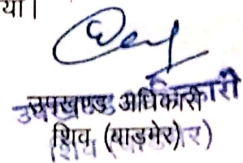 या।
उपखण्ड अधिकारी
शिव (बाड़मेर)